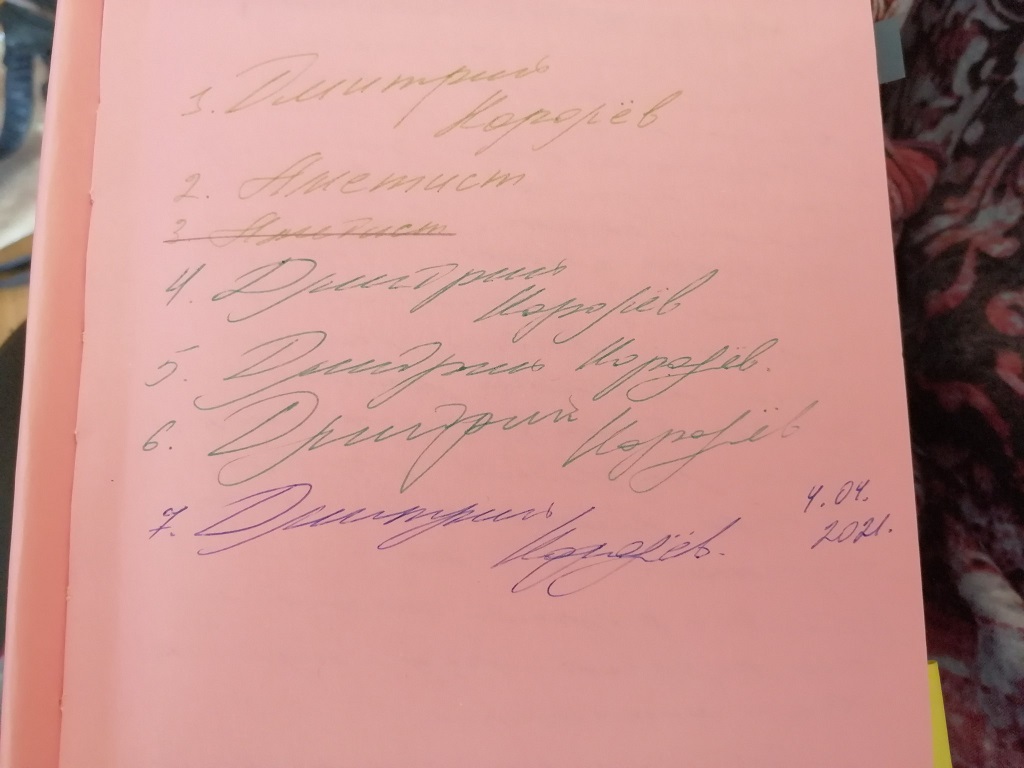 1. Дмитрий
Королёв
2. Аметист
3 Аметист
4. Дмитрий
Королёв
5. Дмитрий Королёв.
6. Дмитрий
Королёв
7. Дмитрий
Королёв.
4.04.
2021.